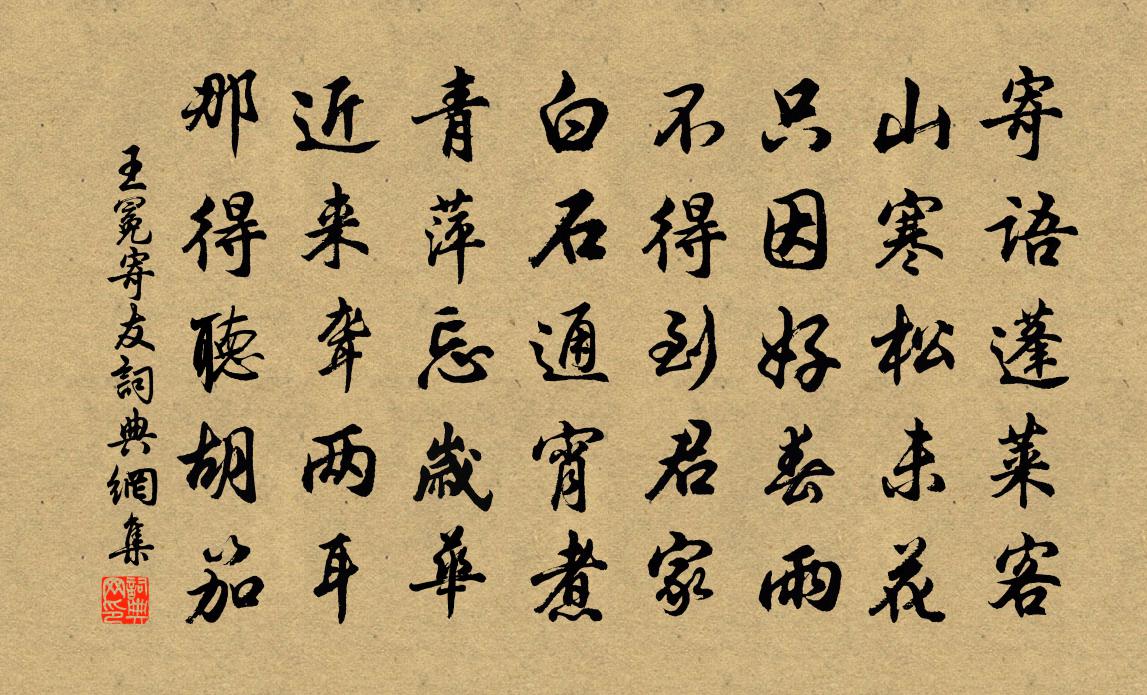 寄语蓬莱客
山寒松未花
只因好春雨
不得到君家
白石通宵煮
青萍忘歲華
近来聋两耳
那得聽胡笳
王冕寄友詞典網集
詞典网印